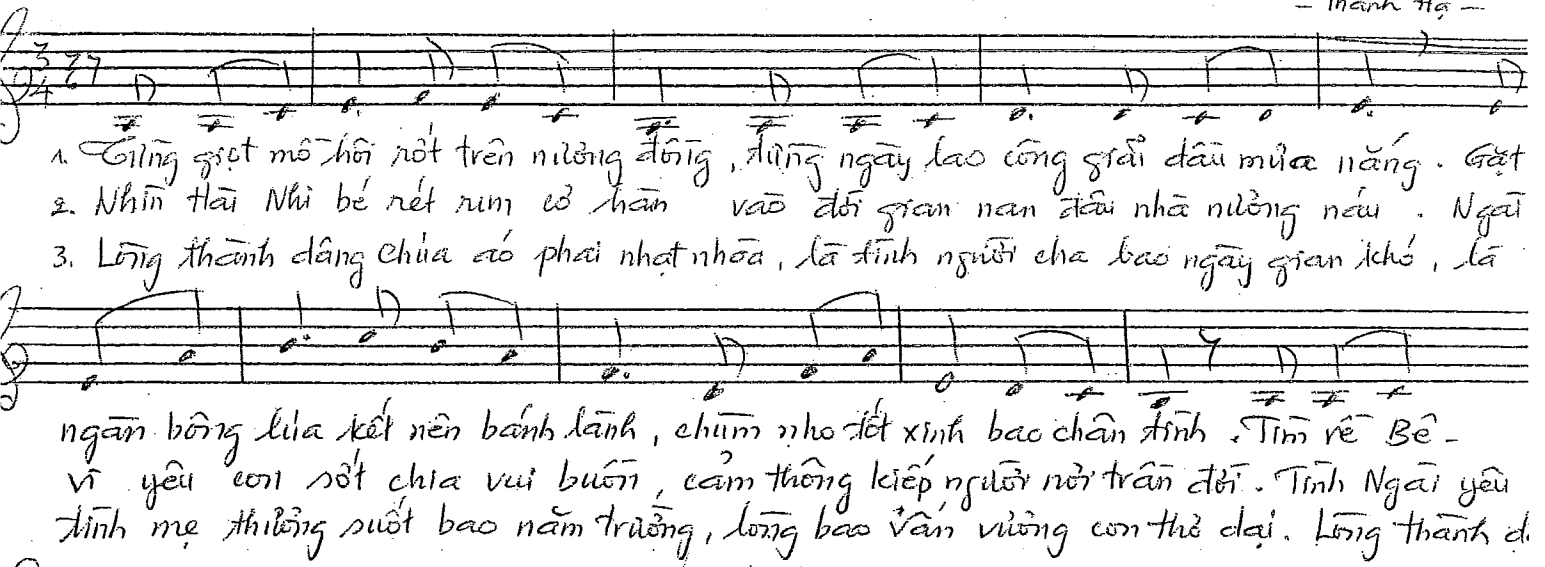 – Thanh Hạ –
3/4
1. Từng giọt mồ hôi rớt trên nương đồng, từng ngày lao công giãi dầu mưa nắng. Gặt
2. Nhìn Hài Nhi bé rét run cơ hàn vào đời gian nan đâu nhà nương náu. Ngài
3. Lòng thành dâng Chúa áo phai nhạt nhòa, là tình người cha bao ngày gian khó, là
ngàn bông lúa kết nên bánh lành, chùm nho tốt xinh bao chân tình. Tìm về Bê-
vì yêu con sớt chia vui buồn, cảm thông kiếp người nơi trần đời. Tình Ngài yêu
tình mẹ thương suốt bao năm trường, lòng bao vấn vương con thơ dại. Lòng thành